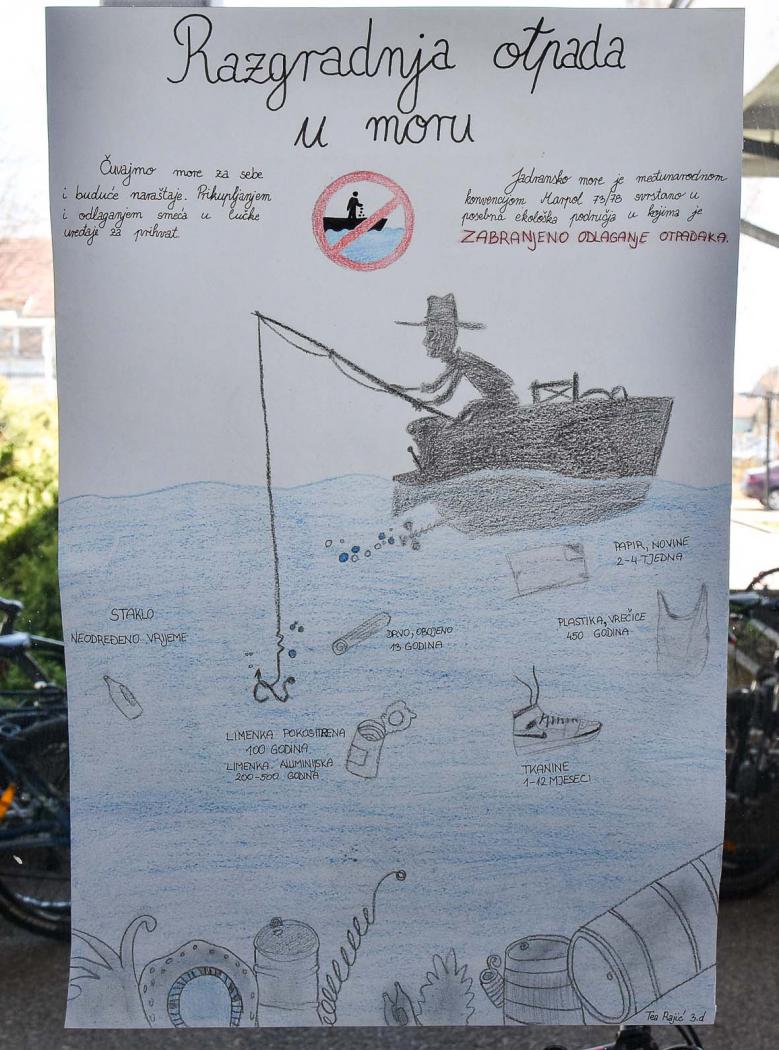 Razgradnja otpada
u moru
Čuvajmo more za sebe
i buduće naraštaje. Prikupljanjem
i odlaganjem smeća u lučke
uređaje za prihvat.
Jadransko more je međunarodnom
konvencijom Marpol 73/78 svrstano u
posebna ekološka područja u kojima je
ZABRANJENO ODLAGANJE OTPADAKA.
PAPIR, NOVINE
2-4 TJEDNA
STAKLO
NEODREĐENO VRIJEME
DRVO, OBOJENO
13 GODINA
PLASTIKA, VREĆICE
450 GODINA
LIMENKA POKOSITRENA
100 GODINA
LIMENKA ALUMINIJSKA
200-500 GODINA
TKANINE
1-12 MJESECI
Tea Rajić 3.d